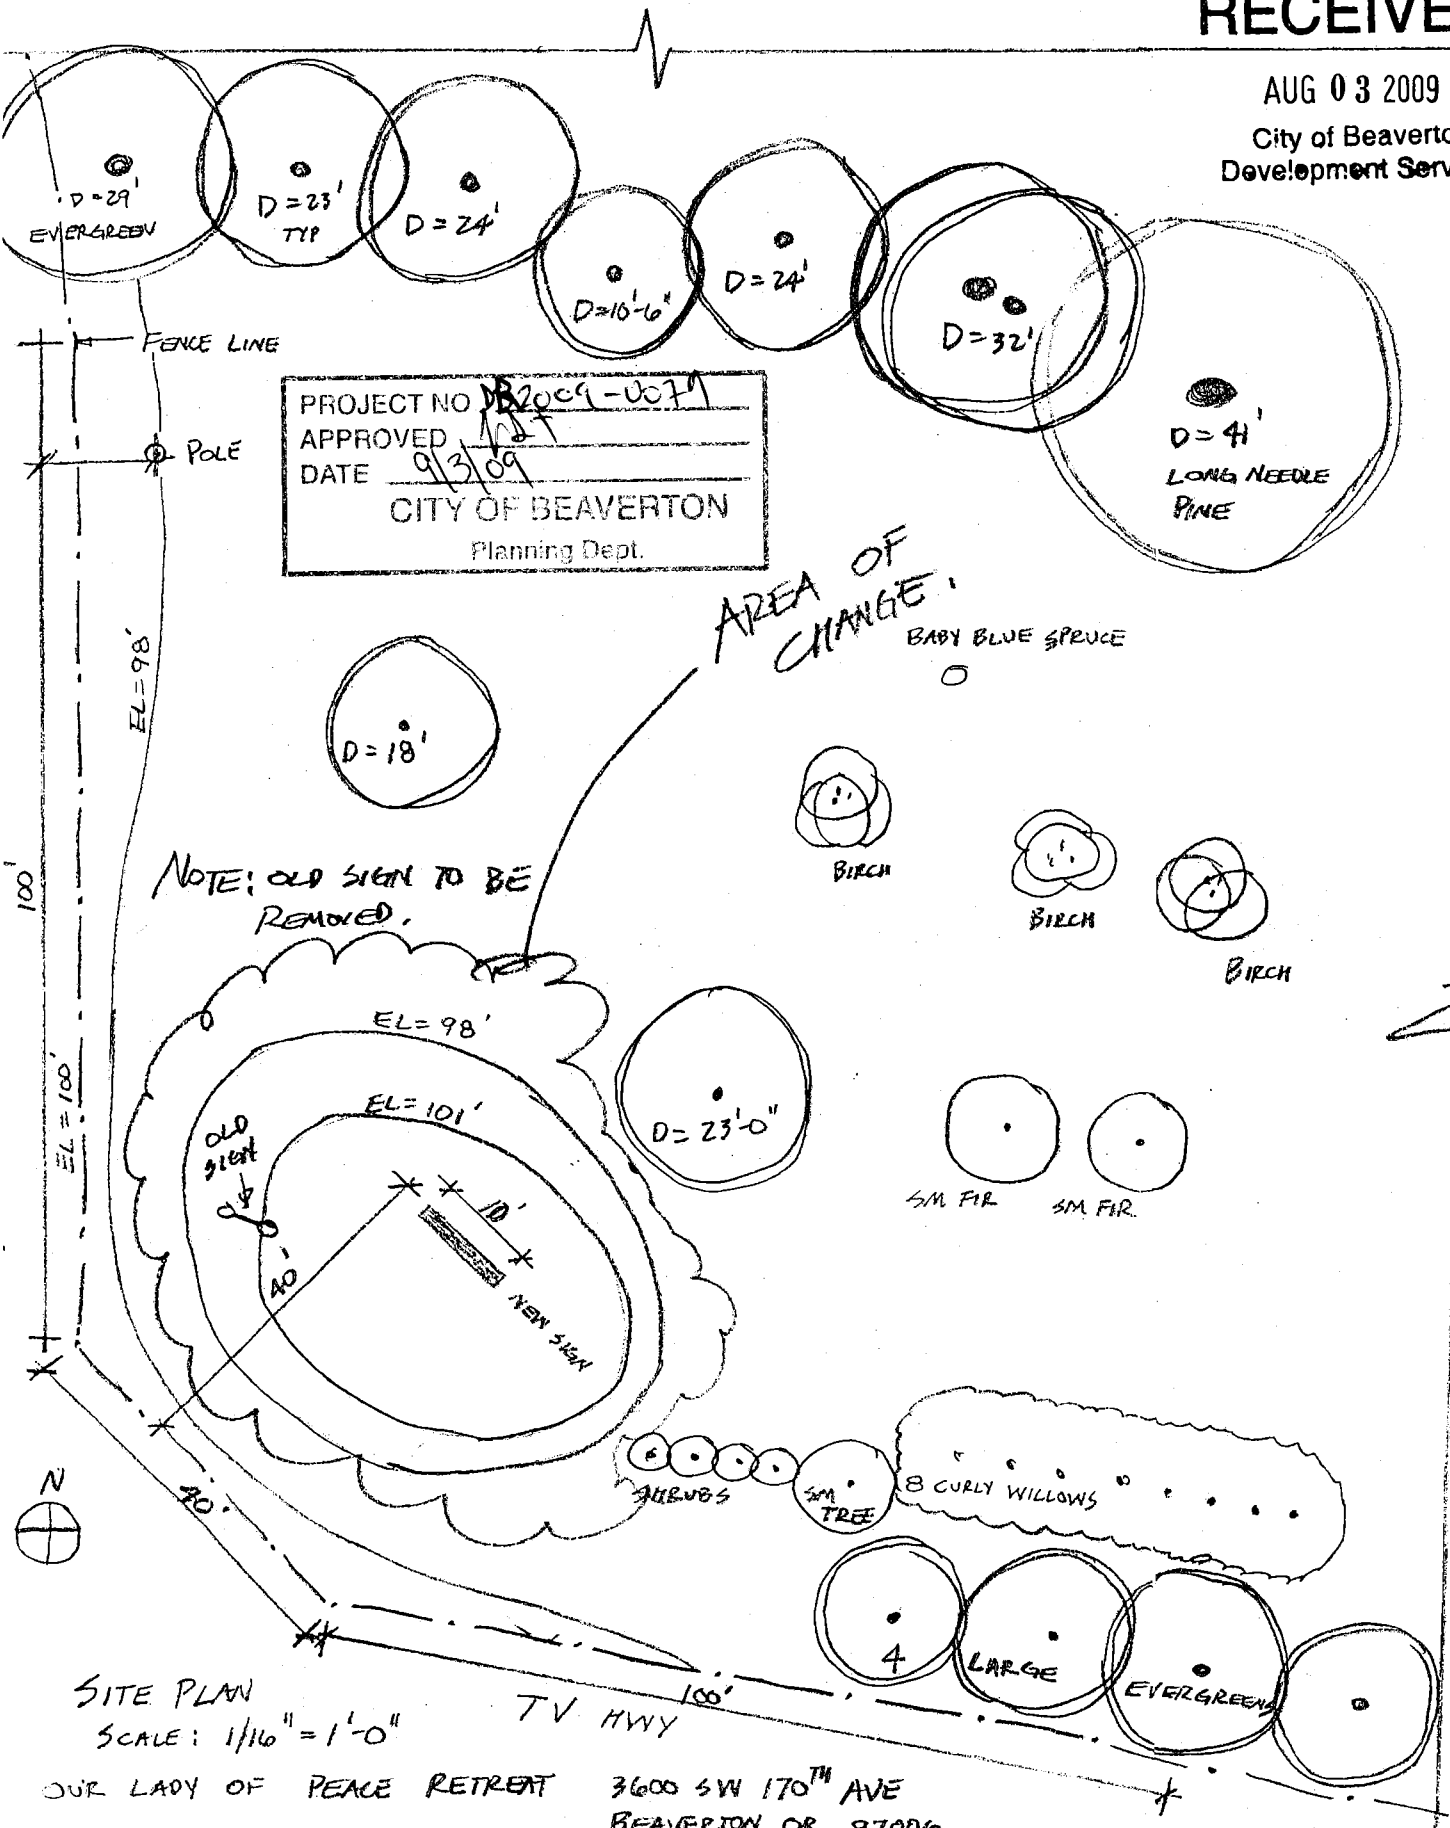 RECEIVE
AUG 03 2009
City of Beaverto
Development Serv
D=29'
EVERGREEN
D=23'
TYP
D=24'
D=10'-6"
D=24'
D=32'
D=41'
LONG NEEDLE
PINE
FENCE LINE
POLE
PROJECT NO
APPROVED
DATE 9/3/09
CITY OF BEAVERTON
Planning Dept.
AREA OF
CHANGE.
BABY BLUE SPRUCE
EL=98'
D=18'
100'
BIRCH
BIRCH
BIRCH
NOTE: OLD SIGN TO BE
REMOVED.
EL=98'
EL=101'
EL=100'
OLD
SIGN
D=23'-0"
10'
40'
NEW SIGN
SM FIR
SM FIR.
N
40'
SHRUBS
SM
TREE
8 CURLY WILLOWS
4
LARGE
EVERGREENS
100'
TV HWY
SITE PLAN
SCALE: 1/16" = 1'-0"
OUR LADY OF PEACE RETREAT
3600 SW 170TH AVE
BEAVERTON OR 97006